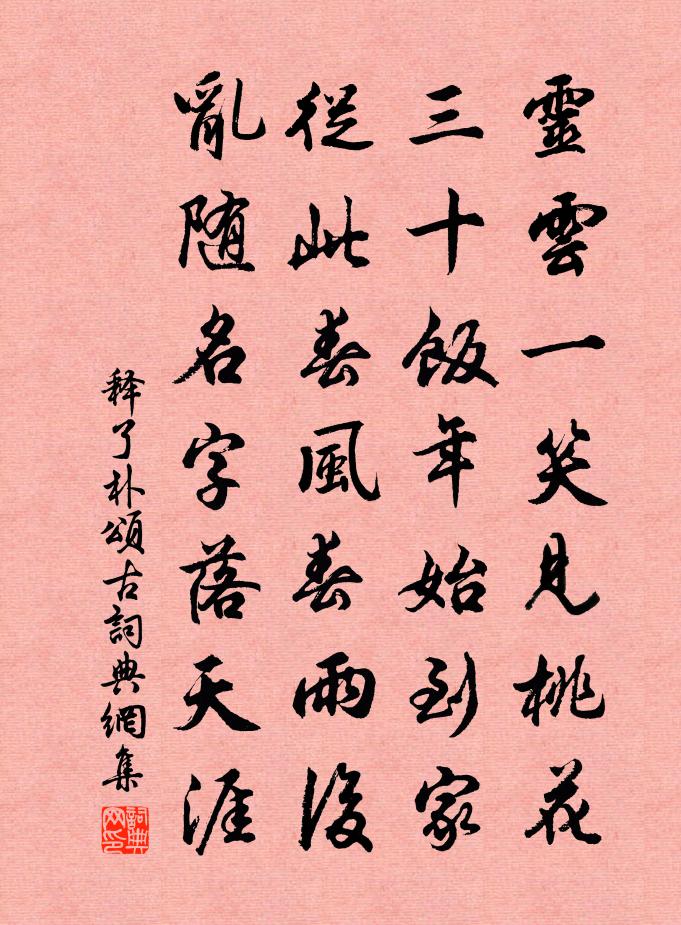 靈雲一笑見桃花
三十飯年始到家
從此春風春雨後
亂随名字落天涯
释了朴頌古詞典網集
詞典网印